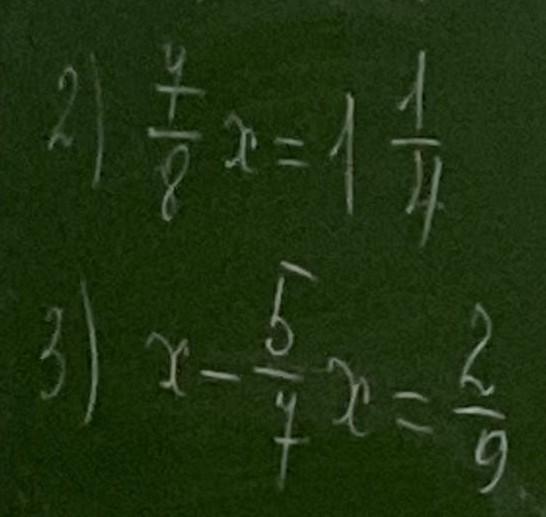 2) 7/8 x = 1 1/4
3) x - 5/7 x = 2/9